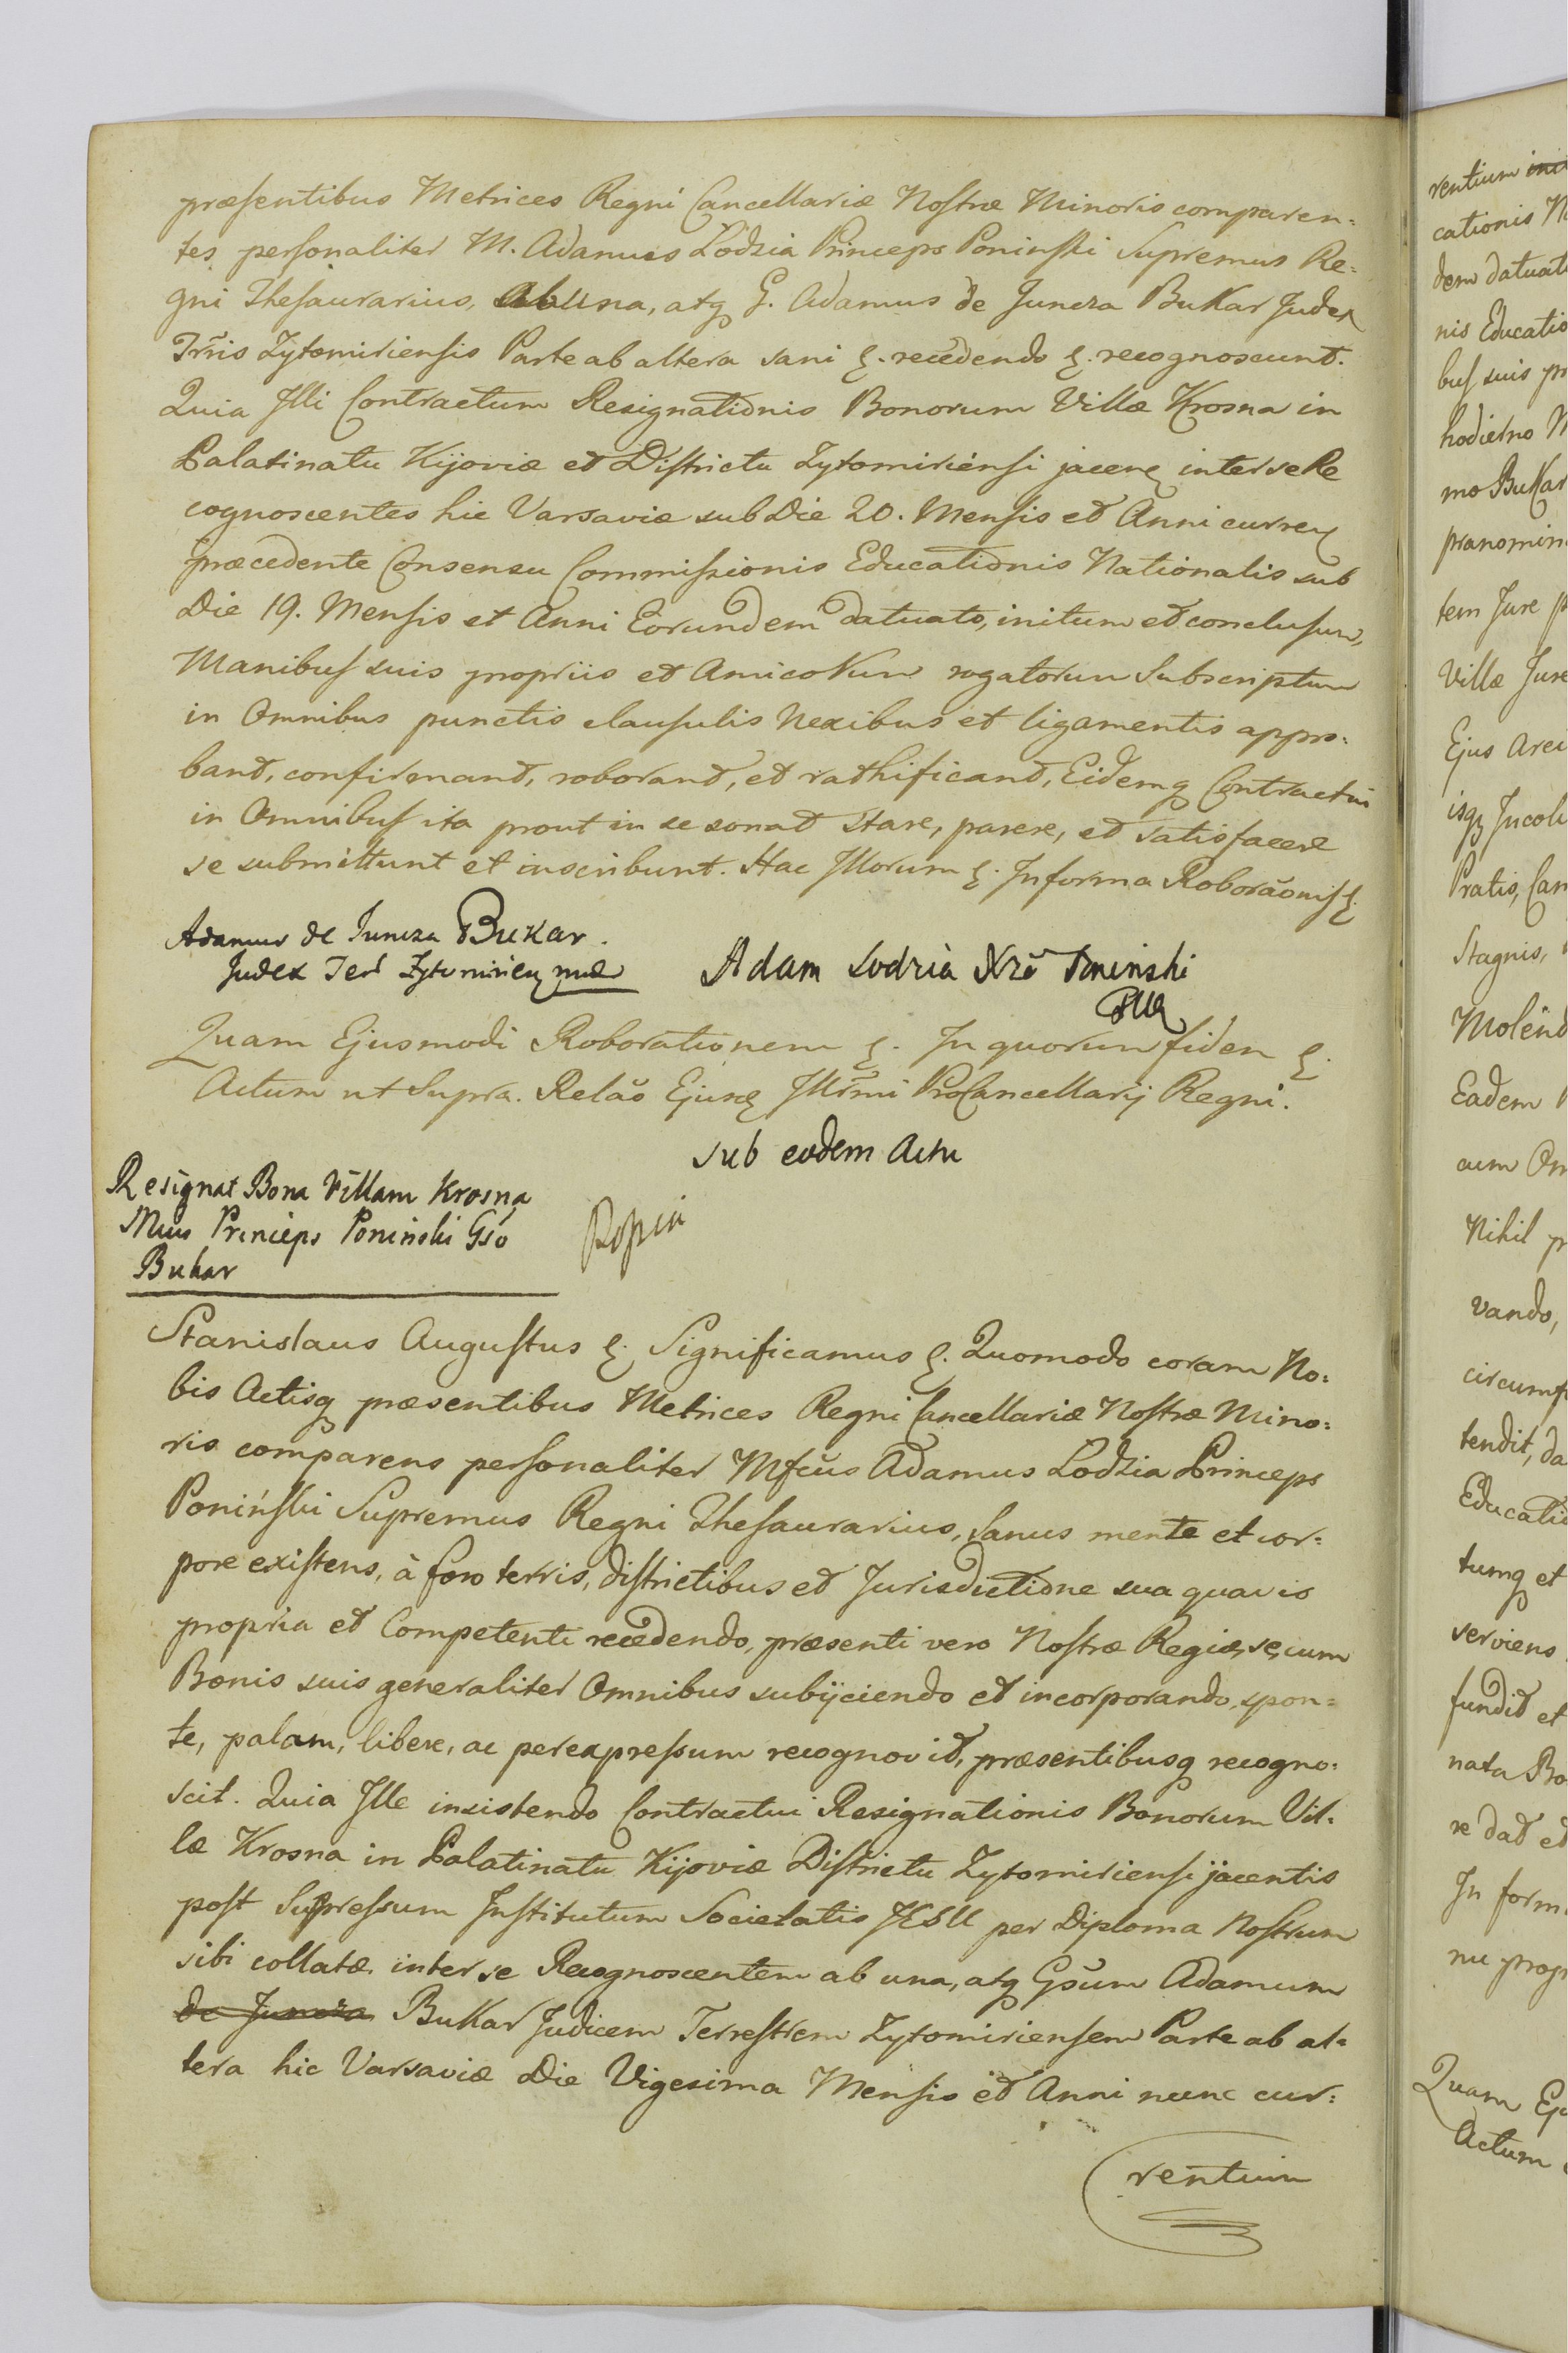 præsentibus Metrices Regni Cancellariæ Nostræ Minoris comparen:
tes personaliter M. Adamus Lodzia Princeps Poninski Supremus Re:
gni Thesaurarius, Ab una, atq G. Adamus de Juncza BuKar Judex
Trr̃is Zytomiriensis Parte ab altera sani &. recedendo &. recognoscunt.
Quia Jlli Contractum Resignationis Bonorum Villæ Krosna in
Palatinatu Kijoviæ et Districtu Zytomiriensi jacen inter se Re
cognoscentes hic Varsaviæ sub Die 20. Mensis et Anni curren
præcedente Consensu Commissionis Educationis Nationalis sub
Die 19. Mensis et Anni Eorundem datuato, initum et conclusum,
Manibus suis propriis et Amicorum rogatorum Subscriptum
in Omnibus punctis clausulis Nexibus et ligamentis appro:
bant, confirmant, roborant, et rathificant, Eidemq Contractui
in Omnibus ita prout in se sonat Stare, parere, et satisfacere
se submittunt et inscribunt. Hac Jllorum &. Jn forma Roborãonis &.
Adamus de Juncza BuKar.
Judex Ter Zytomirien mr
Adam Lodzia Xże Poninski
PWK
Quam Ejusmodi Roborationem &. Jn quorum fidem &.
Actum ut Supra. Relão Ejusd Jllr̃mi ProCancellarij Regni.
sub eodem Actu
Resignat Bona Villam Krosna
Mcus Princeps Poninski Gso
Bukar
Kopia
Stanislaus Augustus &. Significamus &. Quomodo coram No:
bis Actisq præsentibus Metrices Regni Cancellariæ Nostræ Mino:
ris comparens personaliter Mfcũs Adamus Lodzia Princeps
Poniński Supremus Regni Thesaurarius, Sanus mente et cor:
pore existens, à foro terris, districtibus et Jurisdictione sua quavis
propria et Competenti recedendo, præsenti vero Nostræ Regiæ, se, cum
Bonis suis generaliter Omnibus subijciendo et incorporando, spon:
te, palam, libere, ac per expressum recognovit, præsentibusq recogno:
scit. Quia Jlle insistendo Contractui Resignationis Bonorum Vil:
læ Krosna in Palatinatu Kijoviæ Districtu Zytomiriensi jacentis
post Supressum Institutum Societatis JESU per Diploma Nostrum
sibi collatæ inter se Recognoscentem ab una, atq Gsũm Adamum
de Juncza BuKar Judicem Terrestrem Zytomiriensem Parte ab al:
tera hic Varsaviæ Die Vigesima Mensis et Anni nunc cur:
rentium
rentium
cationis
dem datuat
nis Educatio
bus suis pr
hodierno
mo BuKar
pranomin
tem Jure p
Villæ Jure
Ejus Arei
isq Jncol
Pratis, Cam
Stagnis,
Molend
Eadem
cum Om
Nihil p
vando,
circumf
tendit, da
Educatio
tumq et
serviens
fundit et
nata Bo
re dat et
Jn form
nu prop
Quam Ej
Actum